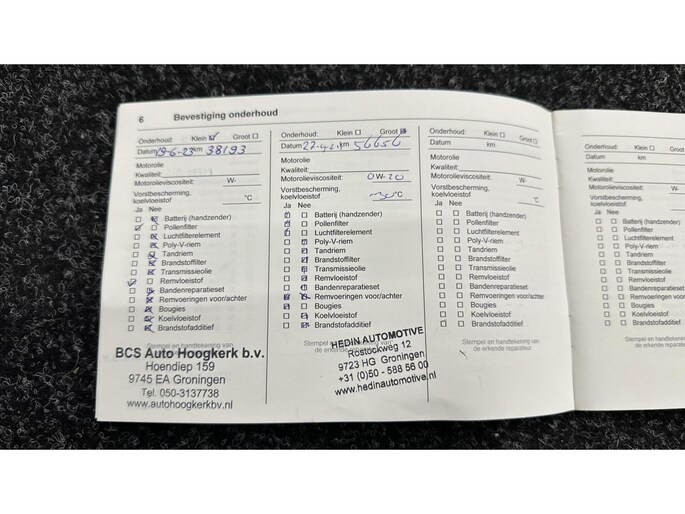 6 Bevestiging onderhoud
Onderhoud: Klein Groot
Datum 19-6-23 km 38193
Motorolie
Kwaliteit:
Motorolieviscositeit: W-
Vorstbescherming,
koelvloeistof °C
Ja Nee
Batterij (handzender)
Pollenfilter
Luchtfilterelement
Poly-V-riem
Tandriem
Brandstoffilter
Transmissieolie
Remvloeistof
Bandenreparatieset
Remvoeringen voor/achter
Bougies
Koelvloeistof
Brandstofadditief
Stempel en handtekening van
BCS Auto Hoogkerk b.v.
Hoendiep 159
9745 EA Groningen
Tel. 050-3137738
www.autohoogkerkbv.nl
Onderhoud: Klein Groot
Datum km 56656
Motorolie
Kwaliteit:
Motorolieviscositeit: 0W-20
Vorstbescherming,
koelvloeistof -30°C
Ja Nee
Batterij (handzender)
Pollenfilter
Luchtfilterelement
Poly-V-riem
Tandriem
Brandstoffilter
Transmissieolie
Remvloeistof
Bandenreparatieset
Remvoeringen voor/achter
Bougies
Koelvloeistof
Brandstofadditief
Stempel en handtekening van
de erkende reparateur.
HEDIN AUTOMOTIVE
Rostockweg 12
9723 HG Groningen
+31 (0)50 - 588 56 00
www.hedinautomotive.nl
Onderhoud: Klein Groot
Datum km
Motorolie
Kwaliteit:
Motorolieviscositeit: W-
Vorstbescherming,
koelvloeistof °C
Ja Nee
Batterij (handzender)
Pollenfilter
Luchtfilterelement
Poly-V-riem
Tandriem
Brandstoffilter
Transmissieolie
Remvloeistof
Bandenreparatieset
Remvoeringen voor/achter
Bougies
Koelvloeistof
Brandstofadditief
Stempel en handtekening van
de erkende reparateur.
Onderhoud:
Datum
Motorolie
Kwaliteit:
Motorolieviscositeit
Vorstbescherming,
koelvloeistof
Ja Nee
Batterij
Pollenfilter
Luchtfilter
Poly-V-riem
Tandriem
Brandstof
Transmissie
Remvloeistof
Bandenrep
Remvoering
Bougies
Koelvloeistof
Brandstof
Stempel en hand
de erkende